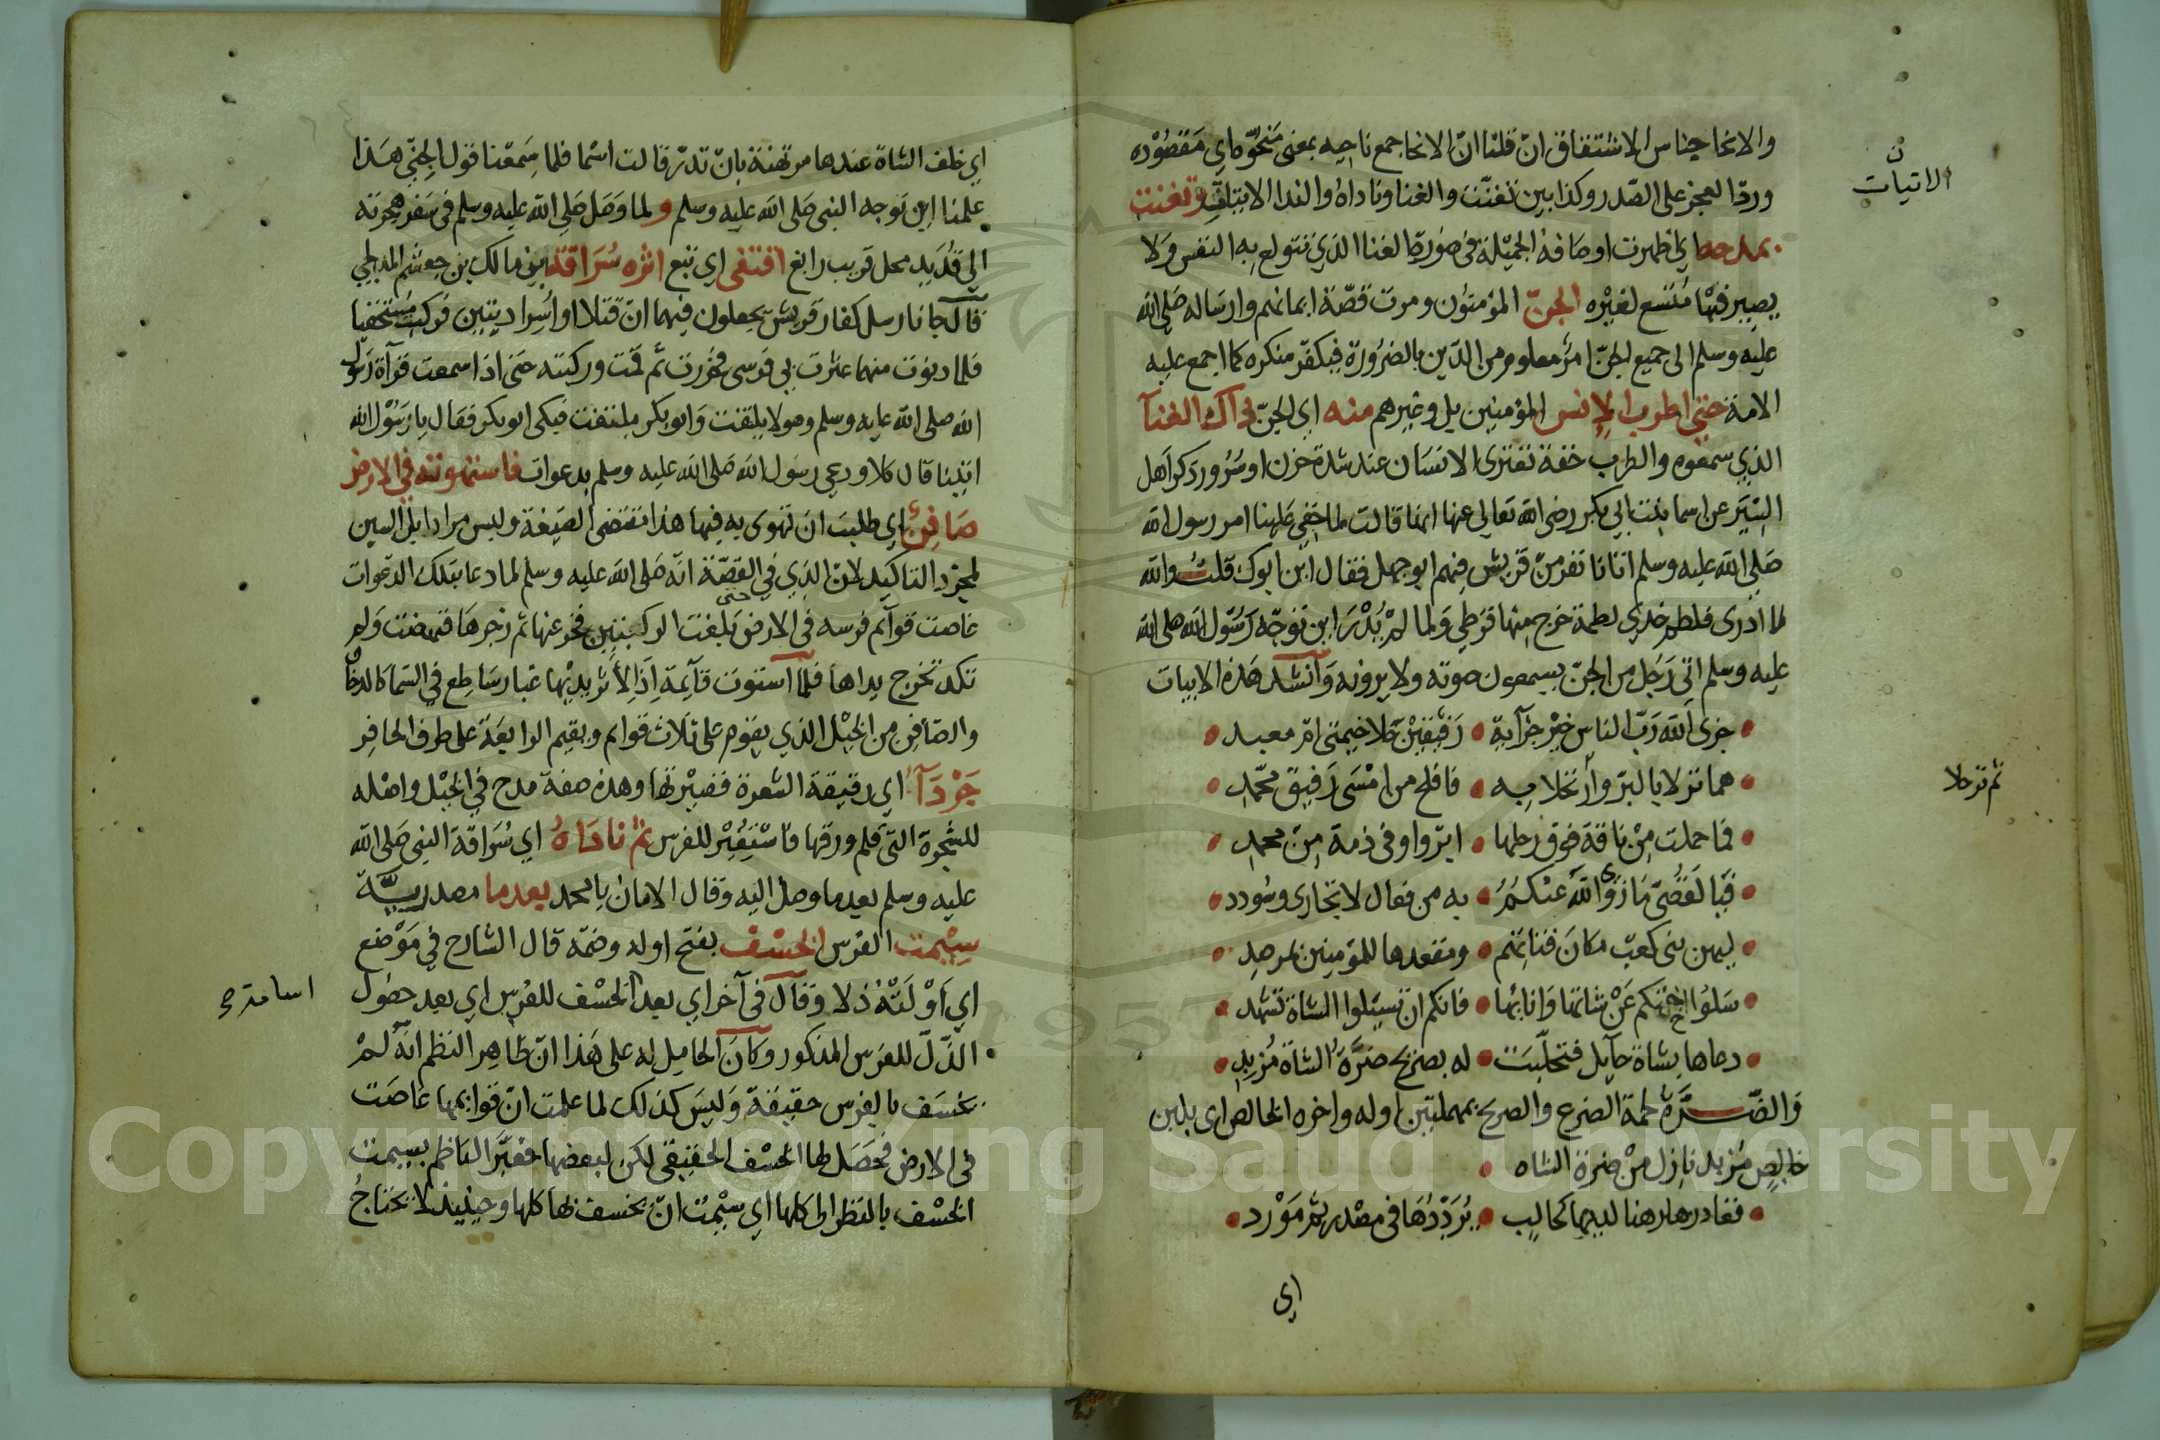 والانحا جناس الاشتقاق ان قلنا ان الانحا جمع ناحيه بمعنى منحوّه اي مقصوده
وردّ العجز على الصّدر وكذا بين تغنّت والغنا وناداه والندا الا
الاتيات
وتغنت
بمدحه اي اظهرت اوصافه الجميلة في صورة الغنا الذي تتولع به النفس ولا
يصير فيها متسع لغيره الجنّ المؤمنون ومرت قصّة ايمانهم وارساله صلى الله
عليه وسلم الى جميع الجنّ امر معلوم من الدّين بالضرورة فيكفر منكره كما اجمع عليه
الامة حتى اطرب الإنس المؤمنين بل وغيرهم منه اي الجنّ ذاك الغنآ
الذي سمعوه والطرب خفة تعتري الانسان عند شدة حزن او سرور ذكر اهل
السّير عن اسما بنت ابي بكر رضي الله تعالى عنها انها قالت لما خفي علينا امر رسول الله
صلى الله عليه وسلم اتانا نفر من قريش فيهم ابو جهل فقال اين ابوك قلت والله
لما ادري فلطم خدي لطمة خرج منها قرطي ولما لم يُدْرَ اين توجّه رسول الله صلى الله
عليه وسلم اتى رجل من الجنّ يسمعون صوته ولا يرونه وأنشد هذه الابيات
جزى الله ربّ الناس خير جزآية • رفيقين حلا خيمتي امّ معبد
هما نزلا بالبرّ وارتحلا به • فافلح من امسى رفيق محمّد
ثم ترحلا
فما حملت من ناقة فوق رحلها • ابرّ واوفى ذمة من محمد
فيا لقصّي ما زوى الله عنكمُ • به من فعال لا تجارى وسودد
ليهن بني كعب مكان فتاتهم • ومقعدها للمؤمنين بمرصد
سلوا اختكم عن شاتها وانائها • فانكم ان تسئلوا الشاة تشهد
دعاها بشاة حايل فتحلّبت • له بصريح ضرّة الشاة مزبد
والضّرّة لحمة الضرع والصريح بمهملتين اوله واخره الخالص اي بلبن
خالص مزبد نازل من ضرة الشاه
فغادرها رهنا لديها كحالب • يُردّدُها في مصدر ثم مورد
اي
اي خلف الشاة عندها مرتهنة بان تدرّ قالت اسما فلما سمعنا قول الجنّي هذا
علمنا اين توجه النبي صلى الله عليه وسلم ولما وصل صلى الله عليه وسلم في سفر هجرته
الى قُدَيد محل قريب رابغ اقتفى اي تبع اثره سُراقة بن مالك بن جعشم المدلجي
قال جانا رسل كفار قريش يجعلون فيهما ان قتلا او أُسِرا ديتين فركبت مستخفيا
فلما دنوت منهما عثرت بي فرسي فخررت ثم قمت وركبته حتى اذا سمعت قرآة رسول
الله صلى الله عليه وسلم وهو لا يلتفت وابو بكر يلتفت فبكى ابو بكر فقال يا رسول الله
اتينا قال كلا ودعى رسول الله صلى الله عليه وسلم بدعوات فاستهوته في الارض
صافن اي طلبت ان تهوى به فيها هذا تقتضى الصيغة وليس مرادا بل السين
لمجرد التاكيد لان الذي في القصّة انه صلى الله عليه وسلم لما دعا بتلك الدعوات
غاصت قوآئم فرسه في الارض حتى بلغت الركبتين فخر عنها ثم زجرها فنهضت ولم
تكد تخرج يداها فلما استوت قآيمة اذا لأثر يديها غبار ساطع في السّما كالدخان
والصّافن من الخيل الذي يقوم على ثلاث قوايم ويقيم الرابعة على طرف الحافر
جَرْدَآ اي رقيقة الشعرة قصيرتها وهذه صفة مدح في الخيل واصله
للشجرة التي قلم ورقها فاستعير للفرس ثم ناداهُ اي سراقة النبي صلى الله
عليه وسلم بعد ما وصل اليه وقال الامان يا محمد بعد ما مصدريّة
سِيْمت الفرس الخسْف بفتح اوله وضمّه قال الشارح في موضع
اي أَوْلَتْهُ ذلا وقال في آخر اي بعد الخسْف للفرس اي بعد حصول
الذّل للفرس المذكور وكان الحامل له على هذا ان ظاهر النظم انه لم
يخسف بالفرس حقيقة وليس كذلك لما علمت ان قوايمها غاصت
في الارض فحصل لها الخسْف الحقيقي لكن لبعضها فعبّر الناظم بسيمت
الخسْف بالنظر الى كلها اي سيمت ان يخسف بها كلها وحينيذ لا نحتاجُ